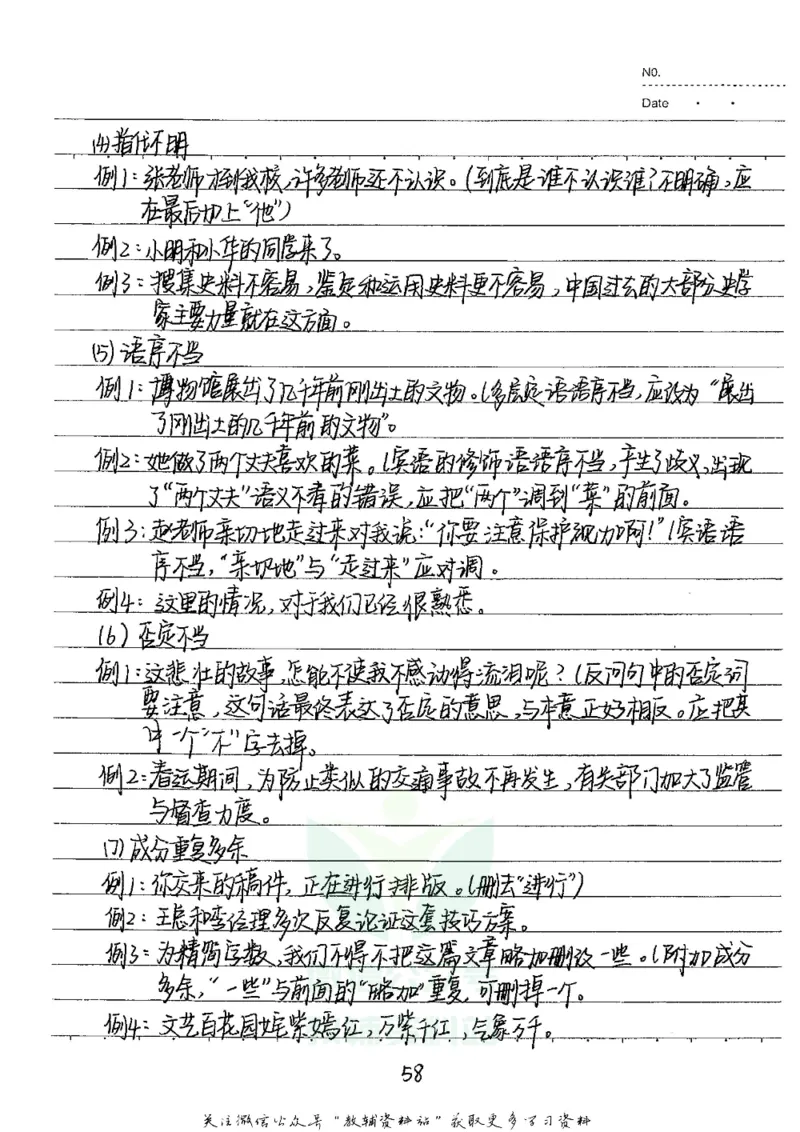 NO.
Date
(4)指代不明
例1:张老师才到我校,许多老师还不认识。(到底是谁不认识谁?不明确,应
在最后加上"他")
例2:小明和小华的同学来了。
例3:搜集史料不容易,鉴定和运用史料更不容易,中国过去的大部分史学
家主要力量就在这方面。
(5)语序不当
例1:博物馆展出了几千年前刚出土的文物。(多层定语语序不当,应改为"展出
了刚出土的几千年前的文物"。
例2:她做了两个丈夫喜欢的菜。(宾语的修饰语语序不当,产生了歧义,出现
了"两个丈夫"语义不孝的错误,应把"两个"调到"菜"的前面。
例3:赵老师亲切地走过来对我说:"你要注意保护视力啊!"(宾语语
序不当,"亲切地"与"走过来"应对调。
例4:这里的情况,对于我们已经很熟悉。
(6)否定不当
例1:这悲壮的故事,怎能不使我不感动得流泪呢?(反问句中的否定词
要注意,这句话最终表达了否定的意思,与本意正好相反。应把其
中一个"不"字去掉。
例2:春运期间,为防止类似的交通事故不再发生,有关部门加大了监管
与督查力度。
(7)成分重复多余
例1:你交来的稿件,正在进行排版。(删去"进行")
例2:王总和李经理多次反复论证这套技巧方案。
例3:为精简字数,我们不得不把这篇文章略加删改一些。(附加成分
多余,"一些"与前面的"略加"重复,可删掉一个。
例4:文艺百花园姹紫嫣红,万紫千红,气象万千。
58
关注微信公众号"教辅资料站"获取更多学习资料